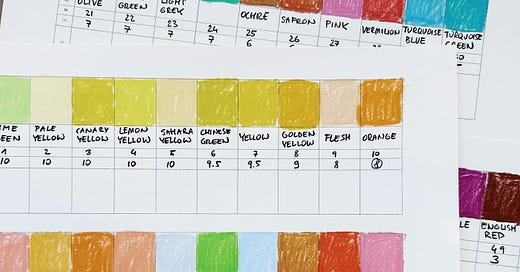 OLIVE GREEN LIGHT GREY OCHRE SAFRON PINK VERMILION TURQUOISE BLUE TURQUOISE GREEN
21 22 23 24 25 26 27
7 7 7 7 6
PALE YELLOW CANARY YELLOW LEMON YELLOW SAHARA YELLOW CHINESE GREEN YELLOW GOLDEN YELLOW FLESH ORANGE
1 2 3 4 5 6 7 8 9 10
10 10 10 10 10 9.5 9.5 9 8 8
ENGLISH RED
49
3